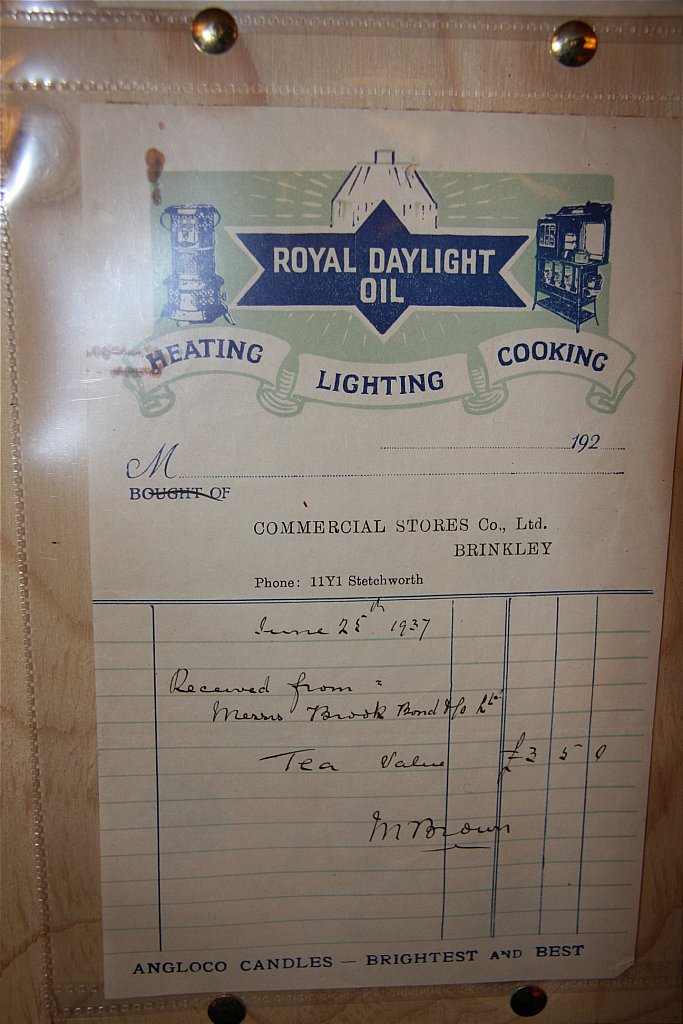 ROYAL DAYLIGHT
OIL
HEATING
LIGHTING
COOKING
192
M
BOUGHT OF
COMMERCIAL STORES Co., Ltd.
BRINKLEY
Phone: 11Y1 Stetchworth
June 25th 1937
Received from
Messrs Brook Bond & Co Ltd
Tea Value £3 5 0
M Brown
ANGLOCO CANDLES — BRIGHTEST AND BEST